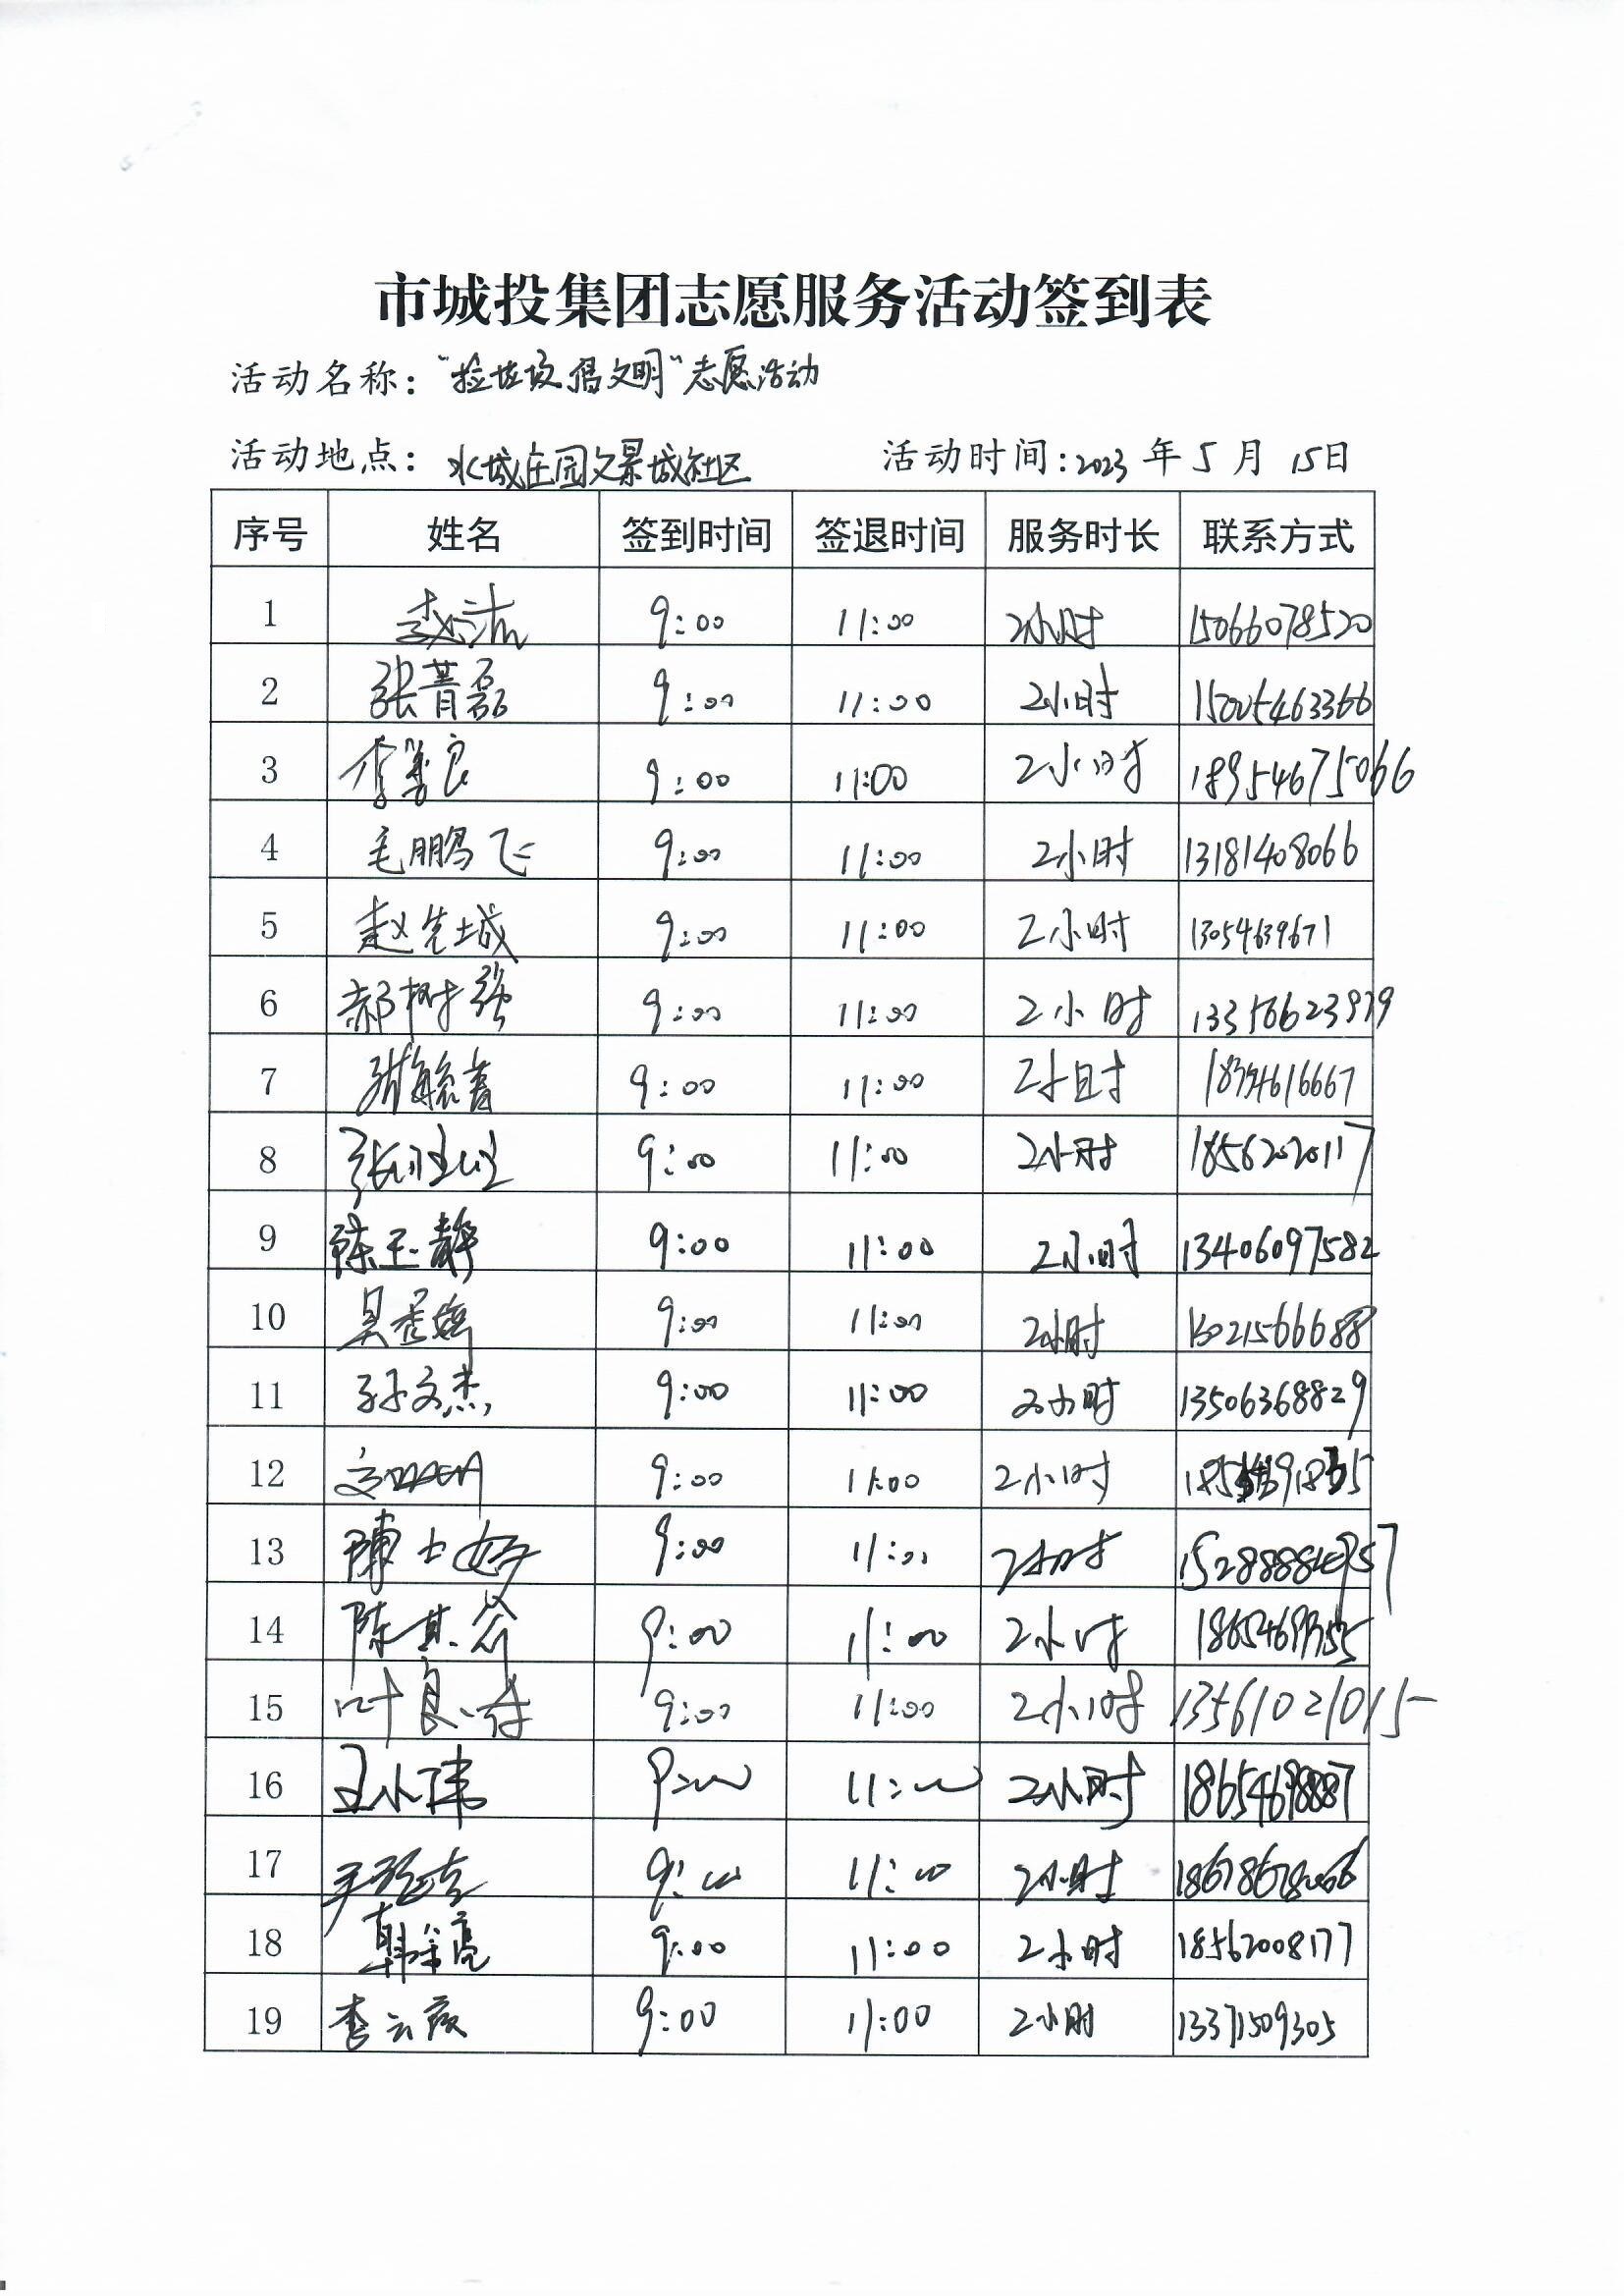 市城投集团志愿服务活动签到表
活动名称："捡垃圾 倡文明"志愿活动
活动地点：水城庄园文景城社区 活动时间：2023 年 5 月 15日
序号 姓名 签到时间 签退时间 服务时长 联系方式
1 9:00 11:00 2小时 15066078520
2 张菁磊 9:00 11:00 2小时 15005463366
3 9:00 11:00 2小时 18954675066
4 毛鹏飞 9:00 11:00 2小时 13181408066
5 赵先城 9:00 11:00 2小时 13054639671
6 郝树强 9:00 11:00 2小时
7 9:00 11:00 2小时
8 9:00 11:00 2小时 18562020117
9 陈玉静 9:00 11:00 2小时 13406097582
10 9:00 11:00 2小时
11 孙文杰 9:00 11:00 2小时 13506368829
12 9:00 11:00 2小时
13 9:00 11:00 2小时
14 9:00 11:00 2小时
15 9:00 11:00 2小时 13561021015
16 王小伟 9:00 11:00 2小时
17 9:00 11:00 2小时
18 9:00 11:00 2小时 18562008177
19 9:00 11:00 2小时 13371509305